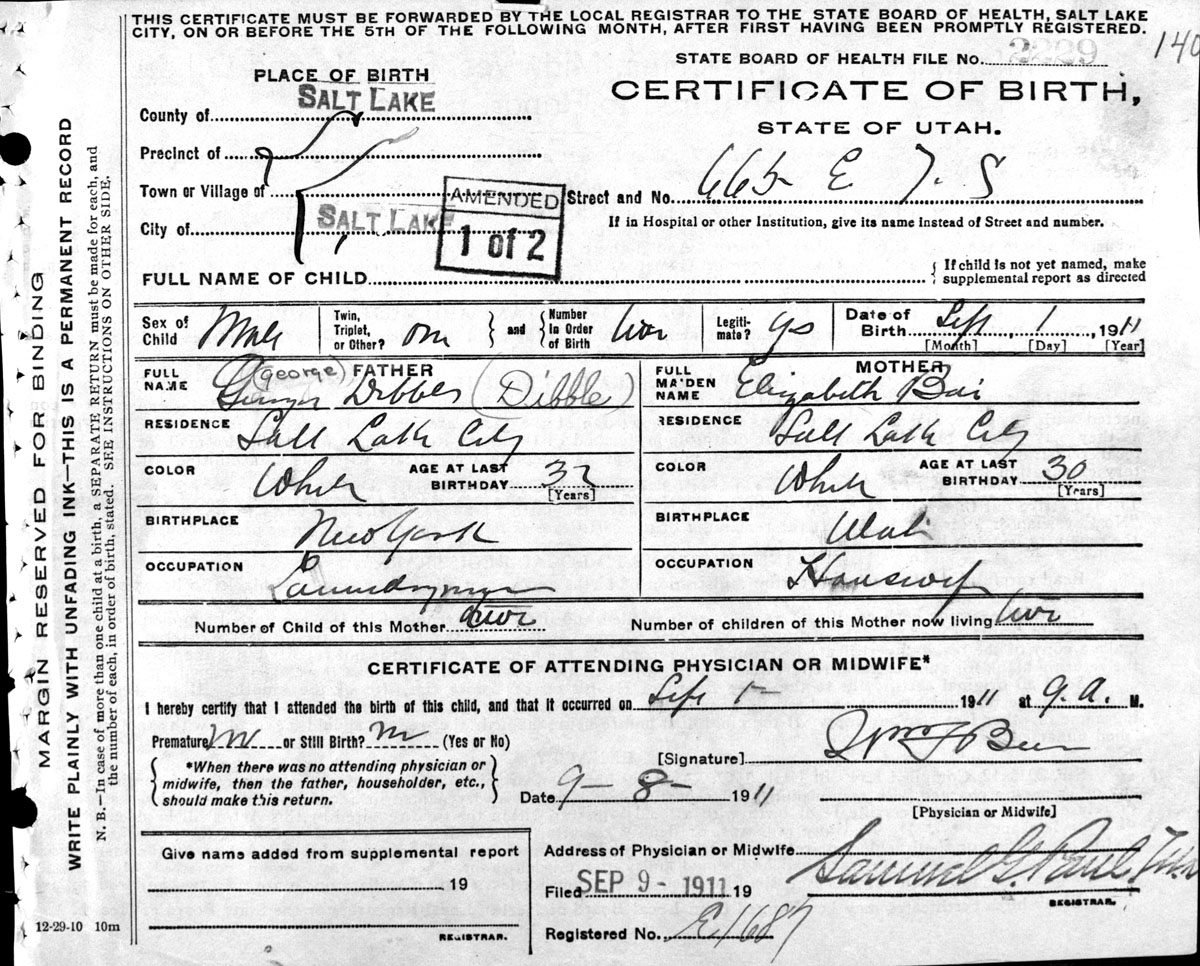 THIS CERTIFICATE MUST BE FORWARDED BY THE LOCAL REGISTRAR TO THE STATE BOARD OF HEALTH, SALT LAKE
CITY, ON OR BEFORE THE 5TH OF THE FOLLOWING MONTH, AFTER FIRST HAVING BEEN PROMPTLY REGISTERED.
140
STATE BOARD OF HEALTH FILE No. 2229
PLACE OF BIRTH
CERTIFICATE OF BIRTH,
STATE OF UTAH.
County of SALT LAKE
Precinct of
Town or Village of
Street and No. 665 E 7. S
City of SALT LAKE
AMENDED
1 of 2
If in Hospital or other Institution, give its name instead of Street and number.
FULL NAME OF CHILD
If child is not yet named, make
supplemental report as directed
Sex of Child Male
Twin, Triplet, or Other? and Number In Order of Birth two
Legitimate? yes
Date of Birth Sept 1 1911
[Month] [Day] [Year]
FATHER
FULL NAME (George) Dibble (Dibble)
RESIDENCE Salt Lake City
COLOR White AGE AT LAST BIRTHDAY 32 [Years]
BIRTHPLACE New York
OCCUPATION Laundryman
MOTHER
FULL MAIDEN NAME Elizabeth
RESIDENCE Salt Lake City
COLOR White AGE AT LAST BIRTHDAY 30 [Years]
BIRTHPLACE Utah
OCCUPATION Housewife
Number of Child of this Mother two
Number of children of this Mother now living two
CERTIFICATE OF ATTENDING PHYSICIAN OR MIDWIFE*
I hereby certify that I attended the birth of this child, and that it occurred on Sept 1- 1911 at 9. a. M.
Premature no or Still Birth? no (Yes or No)
*When there was no attending physician or
midwife, then the father, householder, etc.,
should make this return.
[Signature]
Date 9-8- 1911
[Physician or Midwife]
Give name added from supplemental report
19
REGISTRAR.
Address of Physician or Midwife
Filed SEP 9 - 1911 19
Samuel G. Paul
REGISTRAR.
Registered No. E1687
12-29-10 10m
MARGIN RESERVED FOR BINDING
WRITE PLAINLY WITH UNFADING INK—THIS IS A PERMANENT RECORD
N. B.—In case of more than one child at a birth, a SEPARATE RETURN must be made for each, and
the number of each, in order of birth, stated. SEE INSTRUCTIONS ON OTHER SIDE.